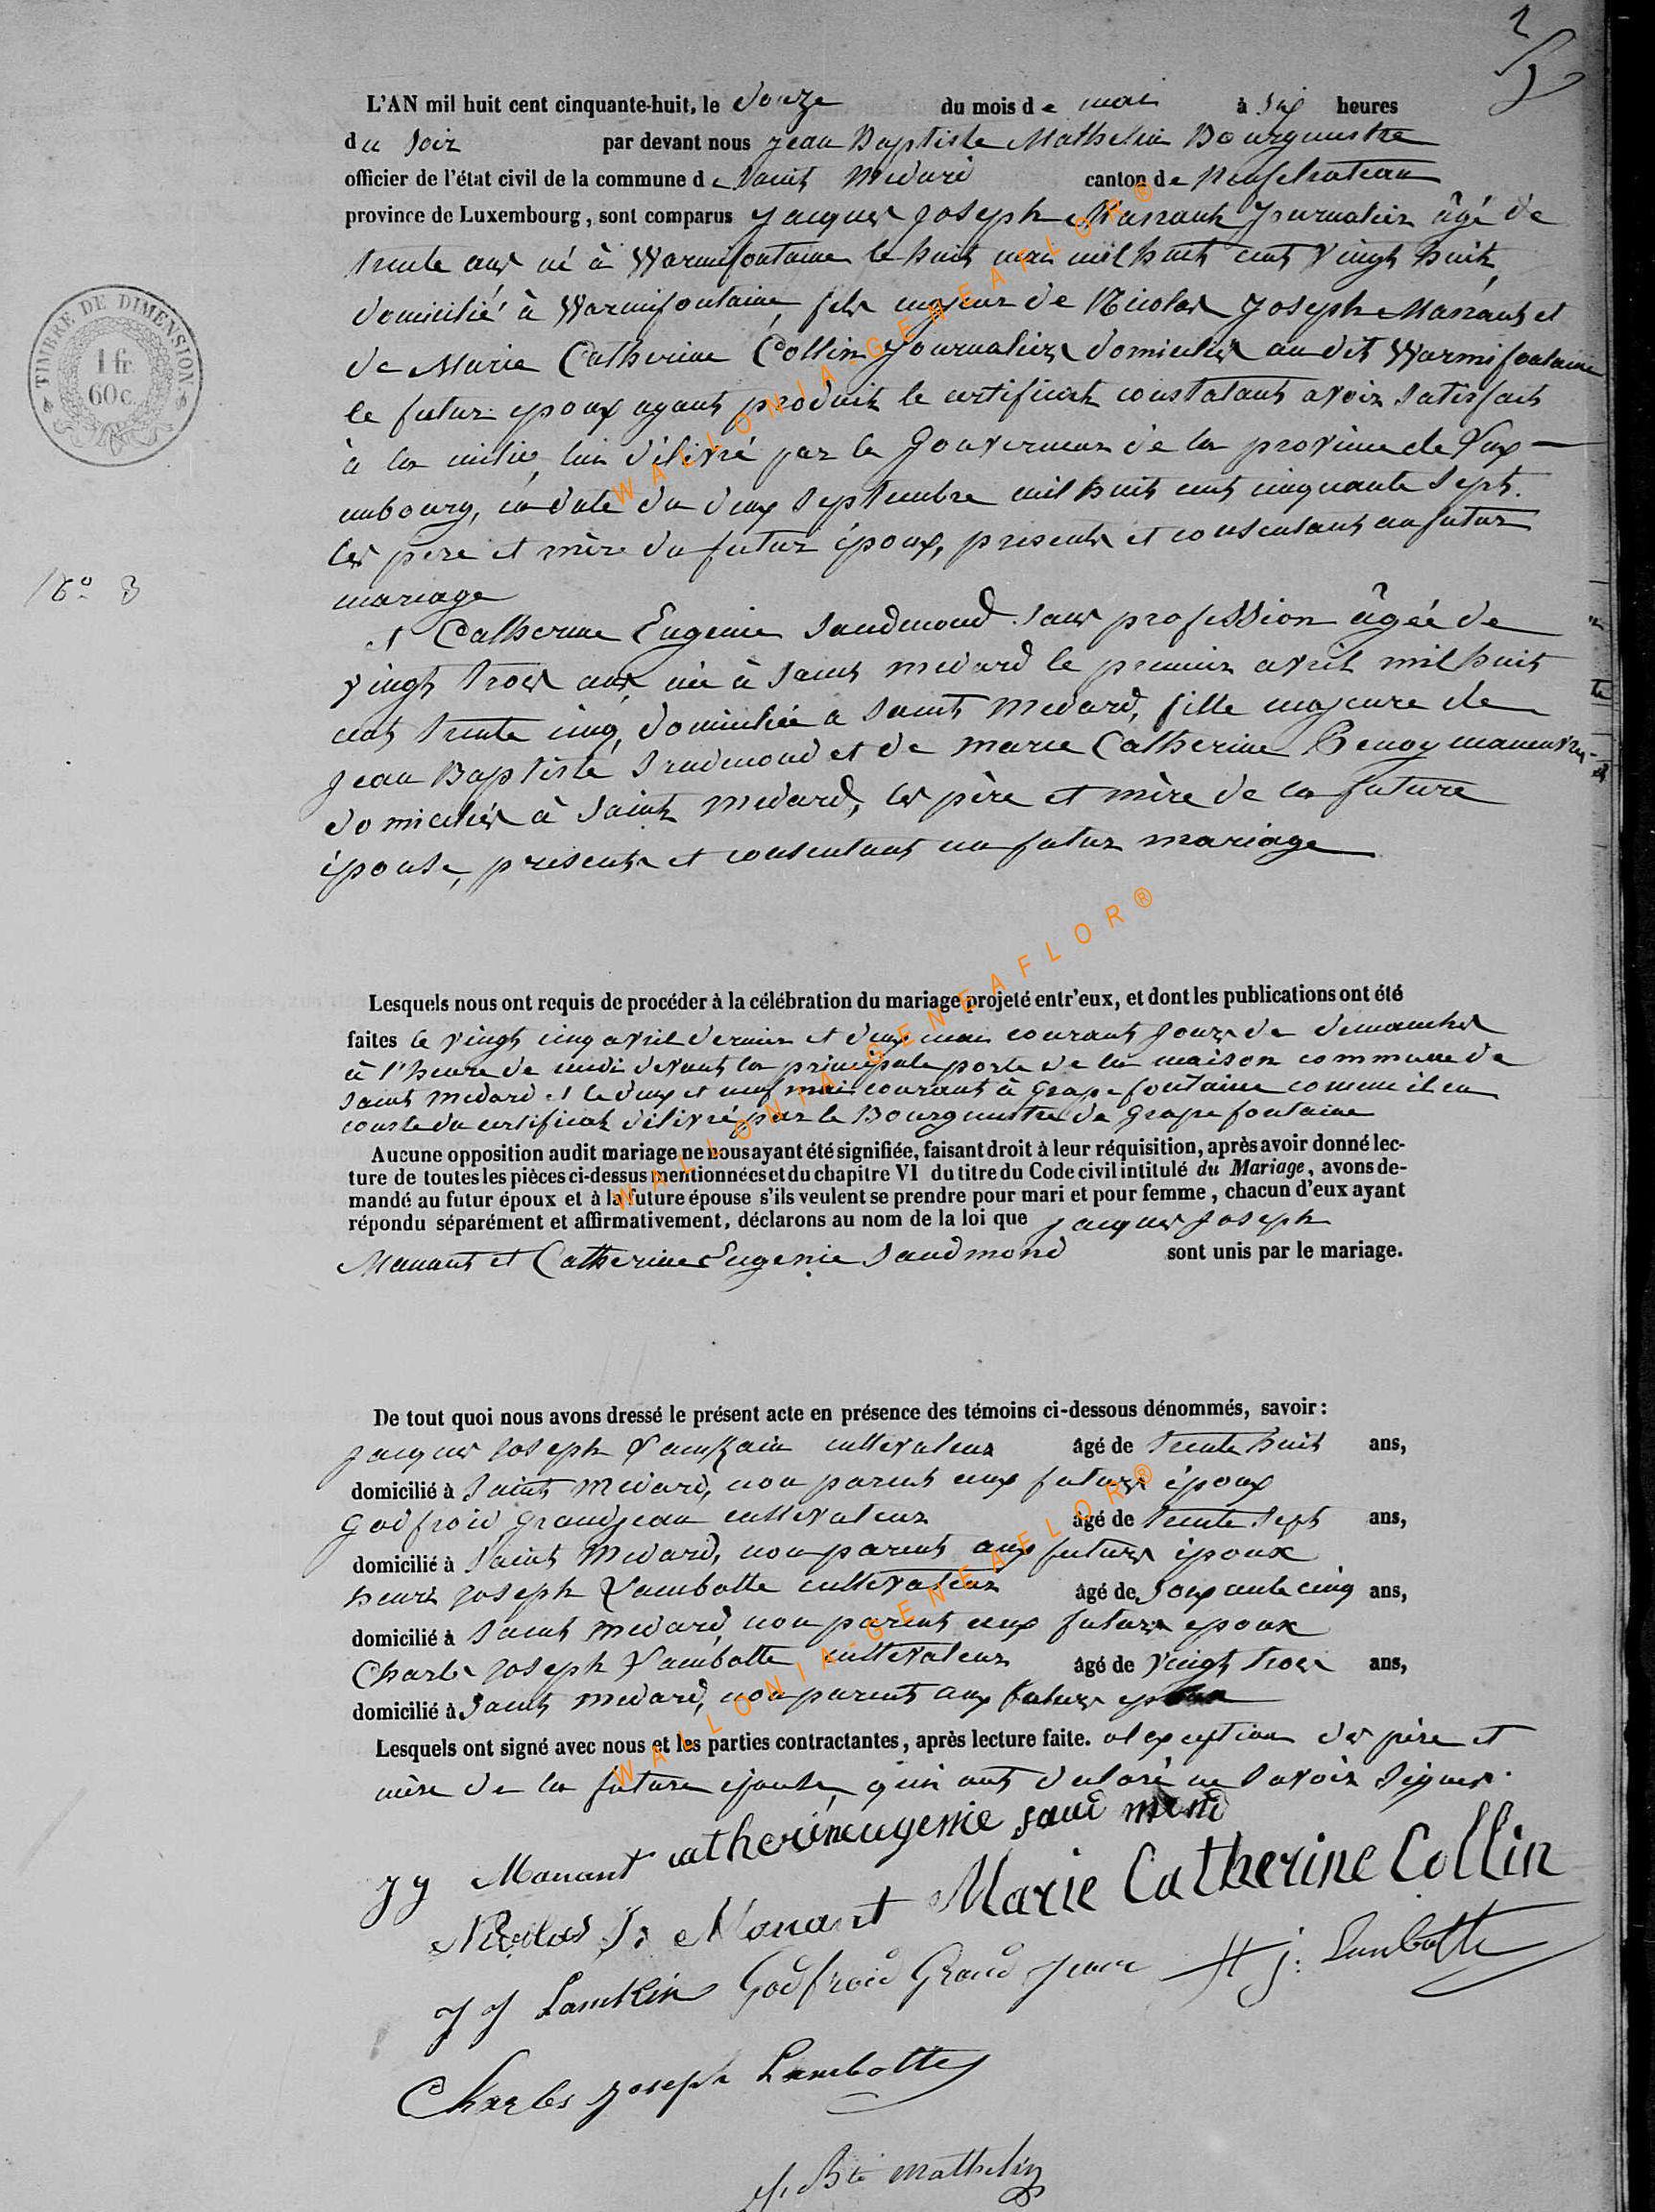 L'AN mil huit cent cinquante-huit, le douze du mois de mai à six heures
du soir par devant nous Jean Baptiste Mathelin Bourgmestre
officier de l'état civil de la commune de Saint Medard canton de Neufchateau
province de Luxembourg, sont comparus Jacques Joseph Manant Journalier âgé de
trente ans né à Warmifontaine le huit mai mil huit cent vingt huit,
domicilié à Warmifontaine, fils majeur de Nicolas Joseph Manant et
de Marie Catherine Collin Journaliers domiciliés au dit Warmifontaine
le futur epoux ayant produit le certificat constatant avoir satisfait
à la milice, lui délivré par le Gouverneur de la province de Lux-
embourg, en date du deux Septembre mil huit cent cinquante Sept.
les pere et mère du futur époux, presents et consentant au futur
mariage
N° 3
et Catherine Eugenie Saudmond sans profession âgée de
vingt trois ans née à Saint Medard le premier avril mil huit
cent trente cinq, domiciliée a Saint Medard, fille majeure de
Jean Baptiste Saudmond et de Marie Catherine manœuvres
domiciliés à Saint Medard, les père et mère de la future
épouse, presents et consentant au futur mariage
Lesquels nous ont requis de procéder à la célébration du mariage projeté entr'eux, et dont les publications ont été
faites le vingt cinq avril dernier et deux mai courant jours de dimanches
à l'heure de midi devant la principale porte de la maison commune de
Saint Medard et le deux et neuf mai courant à Grapefontaine comme il en
conste du certificat délivré par le Bourgmestre de Grapefontaine
Aucune opposition audit mariage ne nous ayant été signifiée, faisant droit à leur réquisition, après avoir donné lec-
ture de toutes les pièces ci-dessus mentionnées et du chapitre VI du titre du Code civil intitulé du Mariage, avons de-
mandé au futur époux et à la future épouse s'ils veulent se prendre pour mari et pour femme, chacun d'eux ayant
répondu séparément et affirmativement, déclarons au nom de la loi que Jacques Joseph
Manant et Catherine Eugenie Saudmond sont unis par le mariage.
De tout quoi nous avons dressé le présent acte en présence des témoins ci-dessous dénommés, savoir:
Jacques Joseph Lamkain cultivateur âgé de trente huit ans,
domicilié à Saint Medard, non parent aux futurs époux
Godfroid Grandjean cultivateur âgé de trente Sept ans,
domicilié à Saint Medard, non parent aux futurs époux
henri Joseph Lambotte cultivateur âgé de Soixante cinq ans,
domicilié à Saint Medard, non parent aux futurs epoux
Charles Joseph Lambotte cultivateur âgé de vingt trois ans,
domicilié à Saint Medard, non parent aux futurs epoux
Lesquels ont signé avec nous et les parties contractantes, après lecture faite. al exception des père et
mère de la future épouse, qui ont déclaré ne Savoir Signer.
JJ Manant catherineeugenie saudmond
Nicolas J: Manant Marie Catherine Collin
JJ Lamkin Godfroid Grandjean H j: Lambotte
Charles Joseph Lambotte
J. Bte Mathelin
TIMBRE DE DIMENSION
1 fr
60 c.
WALLONIA-GENEAFLOR®
WALLONIA-GENEAFLOR®
WALLONIA-GENEAFLOR®